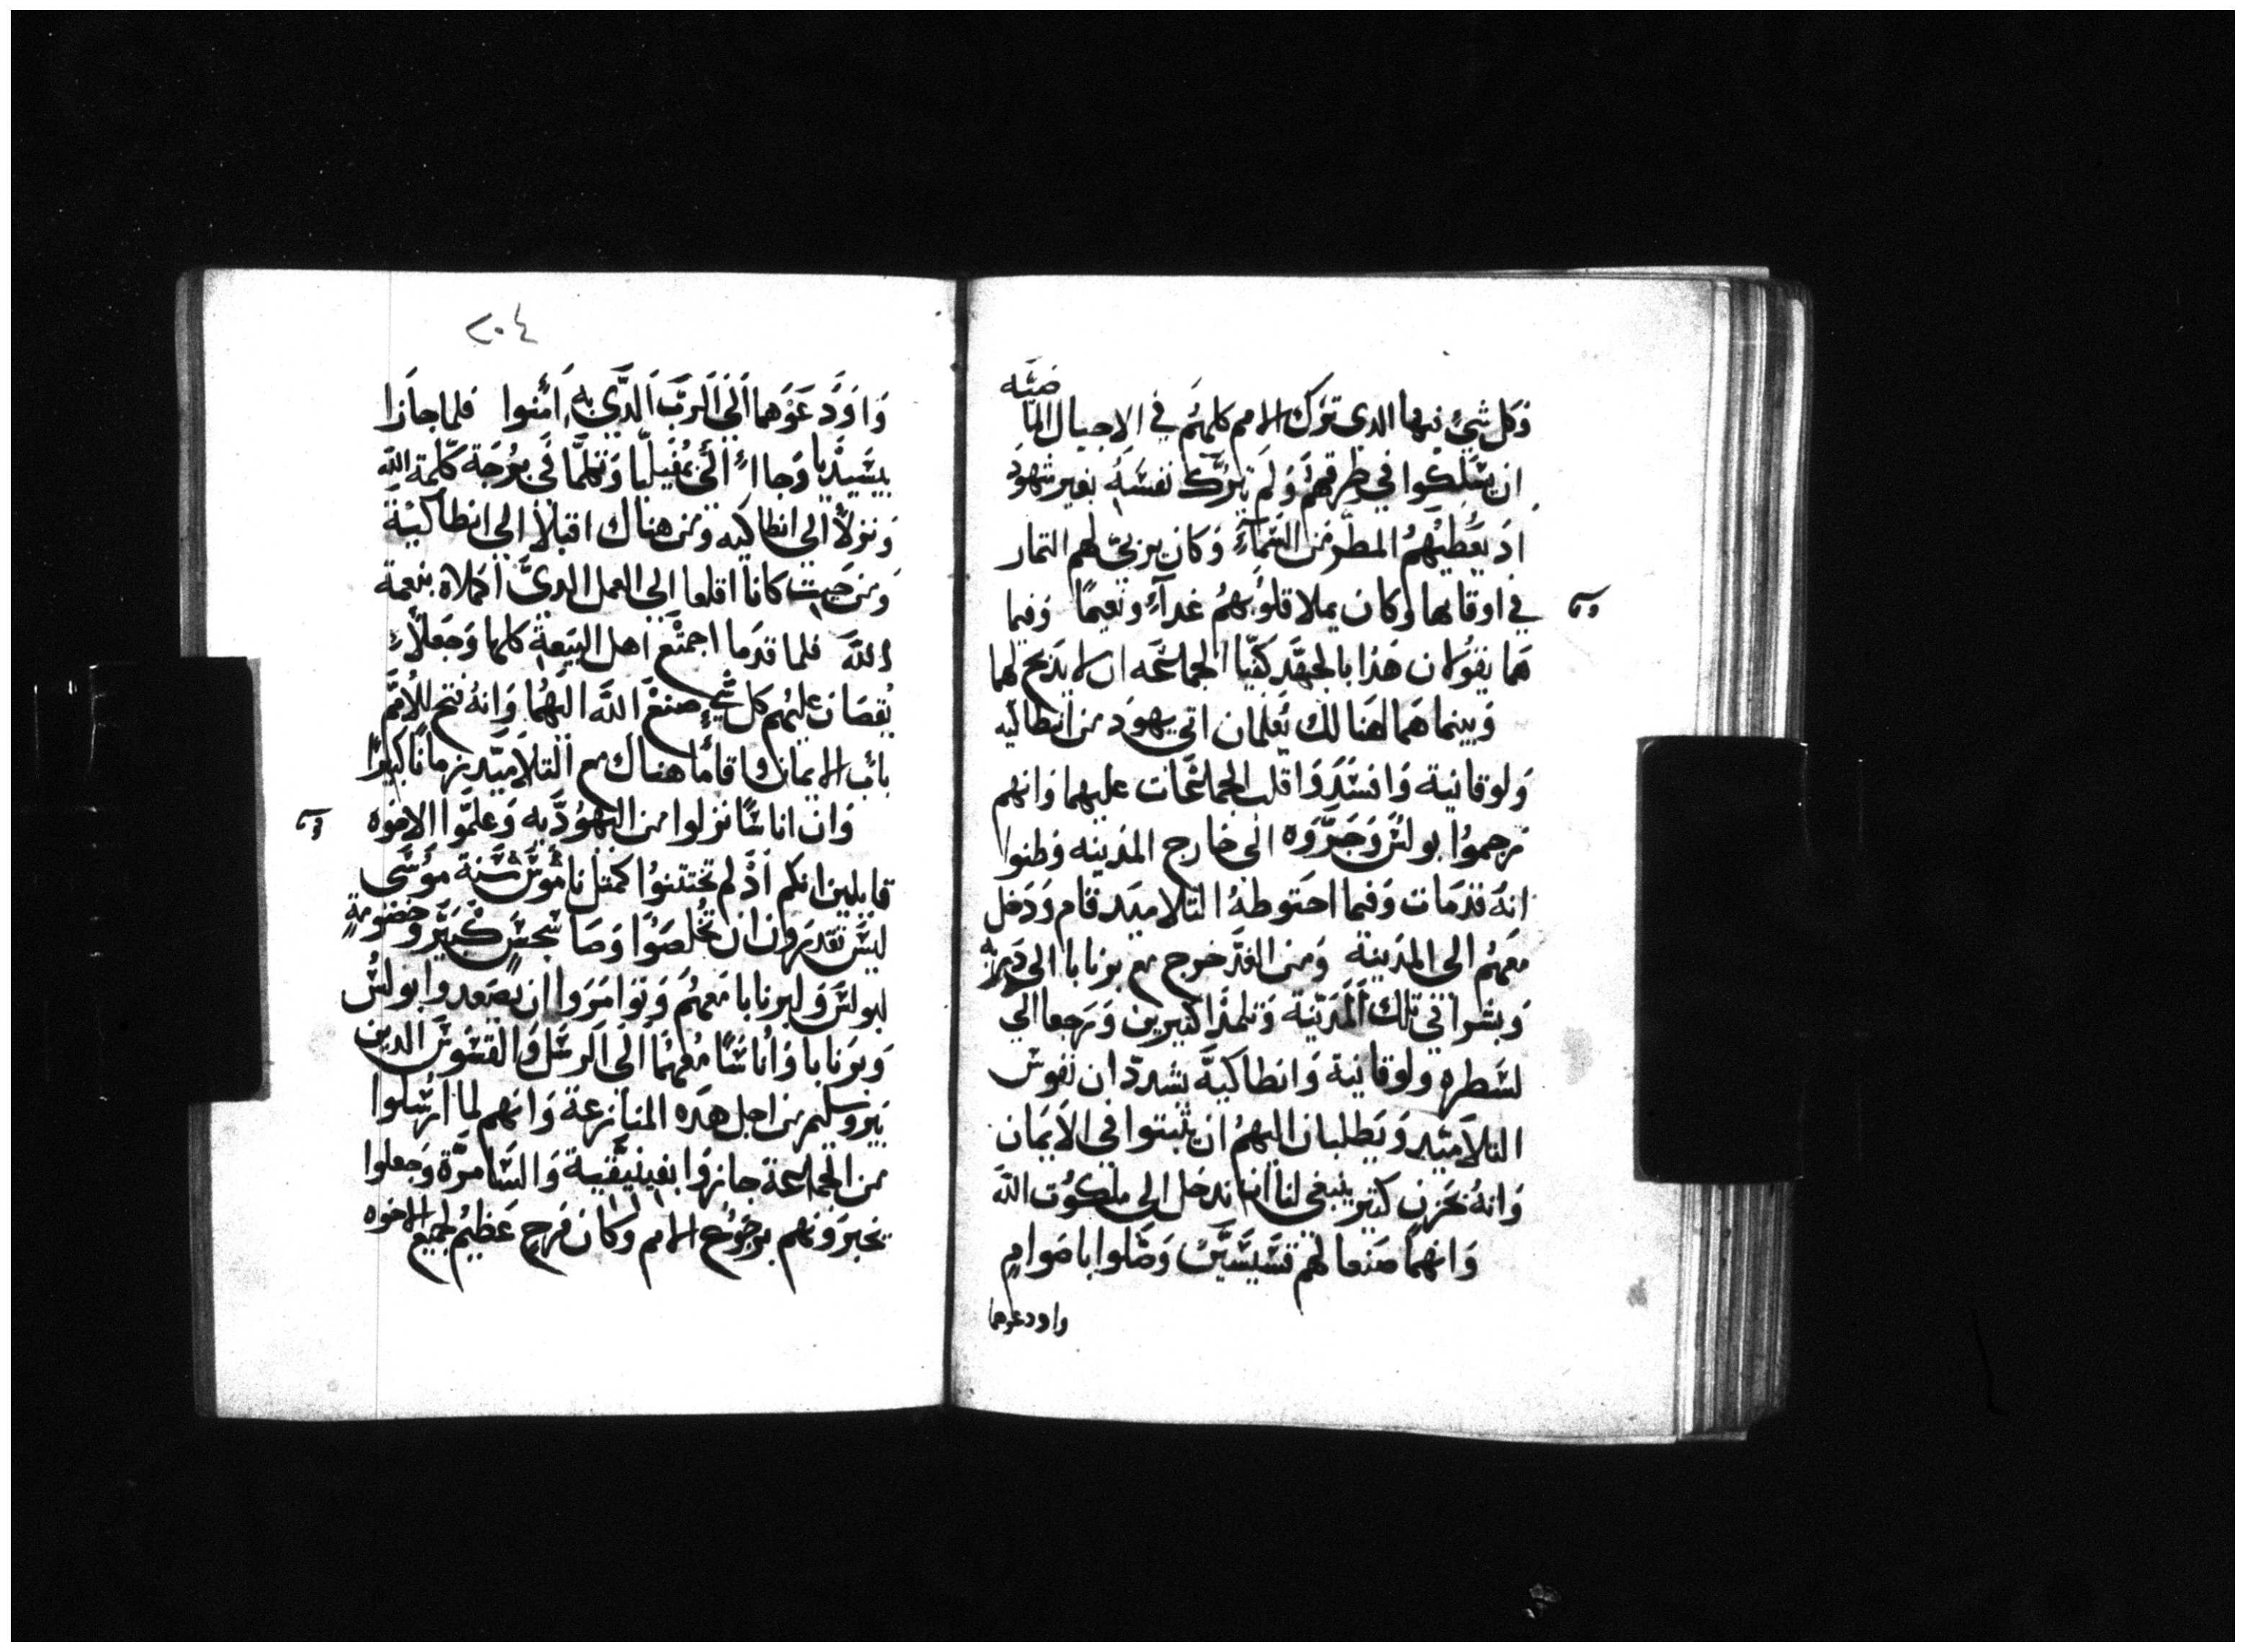 وكل شيء فيها الدي ترك الامم كلهم في الاجيال الماضيه
ان يسلكوا في طرقهم ولم يترك نفسه بغير شهود
اد يعطيهم المطر من السماء وكان يربي لهم التمار
في اوقاتها وكان يملا قلوبهم غداء ونعيما وفيما
هما يقولان هدا بالجهد كفيا الجماعه ان لا يدبح لهما
وبينما هما هنالك يعلمان اتي يهود من انطاكيه
ولوقانية وافسدوا قلب الجماعات عليهما وانهم
رجموا بولس وجروه الي خارج المدينه وظنوا
انه قد مات وفيما احتوطه التلاميد قام ودخل
معهم الي المدينة ومن الغد خرج مع برنابا الي دربه
وبشرا في تلك المدينة وتلمدا كتيرين ورجعا الي
لسطره ولوقانية وانطاكية يشددان نفوس
التلاميد ويطلبان اليهم ان يتبتوا في الايمان
وانه بحزن كتير ينبغي لنا ان ندخل الي ملكوت الله
وانهما صنعا لهم قسيسين وصلوا باصوام
واودعوهما
٢٠٤
واودعوهما الي الرب الدي به امنوا فلما جازا
بيسيديا وجاا الي بمفيليا وتكلما في برجة كلمة الله
ونزلا الي انطاكيه ومن هناك اقبلا الي انطاكية
ومن حيت كانا اقلعا الي العمل الدي اكملاه بنعمة
الله فلما قدما اجتمع اهل البيعة كلها وجعلا
يقصان عليهم كل شي صنع الله اليهما وانه فتح للامم
باب الايمان واقاما هناك مع التلاميد زمانا كبيرا
وان اناسا نزلوا من اليهودية وعلموا الاخوه
قايلين انكم اد لم تختتنوا كمتل ناموس سنة موسي
ليس تقدرون ان تخلصوا وصا سجس كبير وخصومة
لبولس ولبرنابا معهم وتوامروا ان يصعدوا بولس
وبرنابا واناسا معهما الي الرسل والقسوس الدين
بيروسليم من اجل هده المنازعة وانهم لما ارسلوا
من الجماعة جازوا بفينيقية والسامرة وجعلوا
يخبرونهم برجوع الامم وكان فرح عظيم لجميع الاخوه